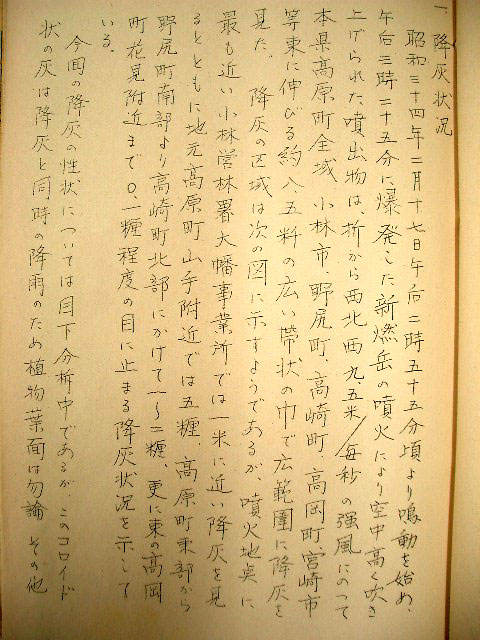 一 降灰状況
昭和三十四年二月十七日午后二時五十五分頃より鳴動を始め、
午后三時二十五分に爆発した新燃岳の噴火により空中高く吹き
上げられた噴出物は、折から西北西九.五米／毎秒の強風にのって
本県高原町全域 小林市、野尻町、高崎町 高岡町宮崎市
等東に伸びる約八五粁の広い帯状の巾で広範囲に降灰を
見た。 降灰の区域は次の図に示すようであるが、噴火地点に
最も近い小林営林署大幡事業所では一米に近い降灰を見
るとともに地元高原町山手附近では五糎、高原町東部から
野尻町南部より高崎町北部にかけて一〜二糎、更に東の高岡
町花見附近まで〇.一糎程度の目に止まる降灰状況を示して
いる。
今回の降灰の性状については目下分析中であるが このコロイド
状の灰は降灰と同時の降雨のため植物葉面は勿論 その他